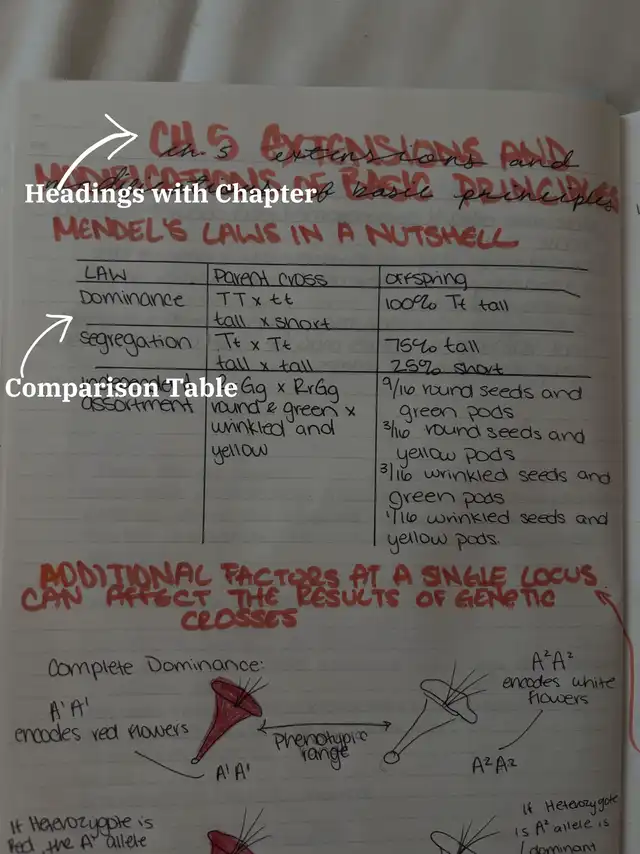 CH. 5 EXTENSIONS AND
ch. 5 extensions and
MODIFICATIONS OF BASIC PRINCIPLES
of basic principles
Headings with Chapter
MENDEL'S LAWS IN A NUTSHELL
LAW Parent cross offspring
Dominance TT x tt 100% Tt tall
tall x short
segregation Tt x Tt 75% tall
tall x tall 25% short
Comparison Table
assortment
Gg x RrGg
round & green x
wrinkled and
yellow
9/16 round seeds and
green pods
3/16 round seeds and
yellow pods
3/16 wrinkled seeds and
green pods
1/16 wrinkled seeds and
yellow pods.
ADDITIONAL FACTORS AT A SINGLE LOCUS
CAN AFFECT THE RESULTS OF GENETIC
CROSSES
Complete Dominance:
A¹A¹
encodes red flowers
A¹A¹
phenotypic
range
A²A²
encodes white
flowers
A²A²
If Heterozygote is
Red, the A¹ allele
If Heterozygote
is A² allele is
dominant